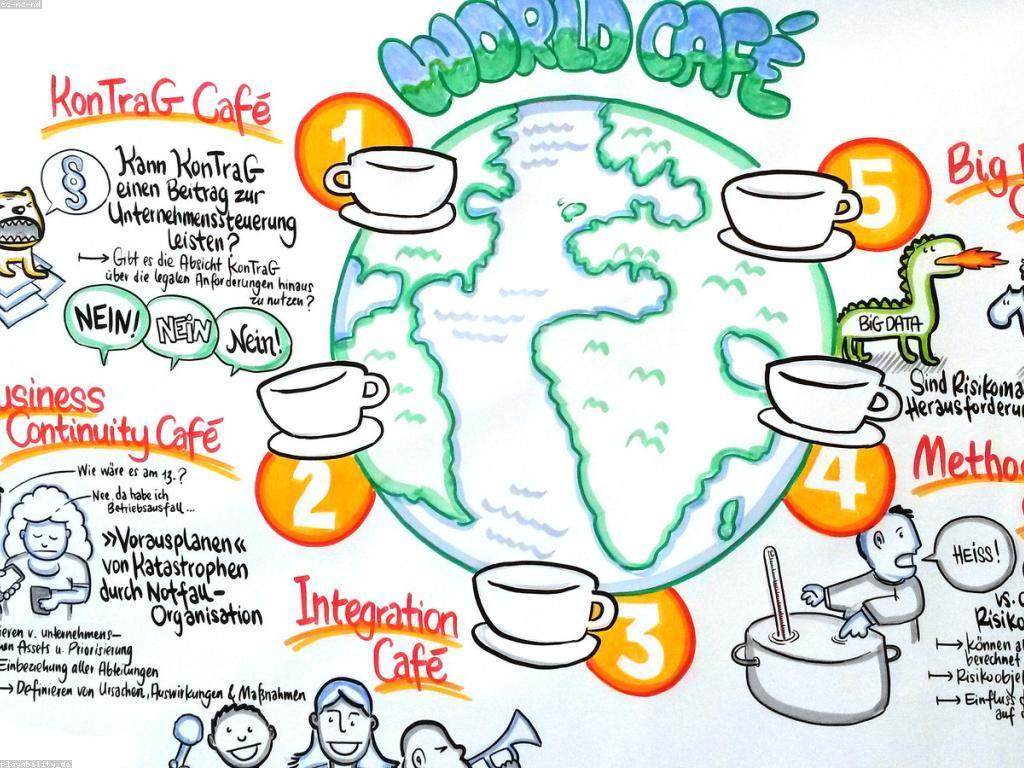 cc-nc-nd
WORLD CAFÉ
KonTraG Café
1
§
Kann KonTraG
einen Beitrag zur
Unternehmenssteuerung
leisten?
Gibt es die Absicht KonTraG
über die legalen Anforderungen hinaus
zu nutzen?
NEIN!
NEIN
Nein!
usiness
Continuity Café
2
Wie wäre es am 13.?
Nee, da habe ich
Betriebsausfall...
»Vorausplanen«
von Katastrophen
durch Notfall-
Organisation
ieren v. unternehmens-
en Assets u. Priorisierung
Einbeziehung aller Abteilungen
→ Definieren von Ursachen, Auswirkungen & Maßnahmen
Integration
Café
3
4
Metho
HEISS!
vs.
Risiko
können a
berechnet
Risikoobje
Einfluss d
auf
5
Big
BIG DATA
Sind Risikoma
Herausforderun
playability_de